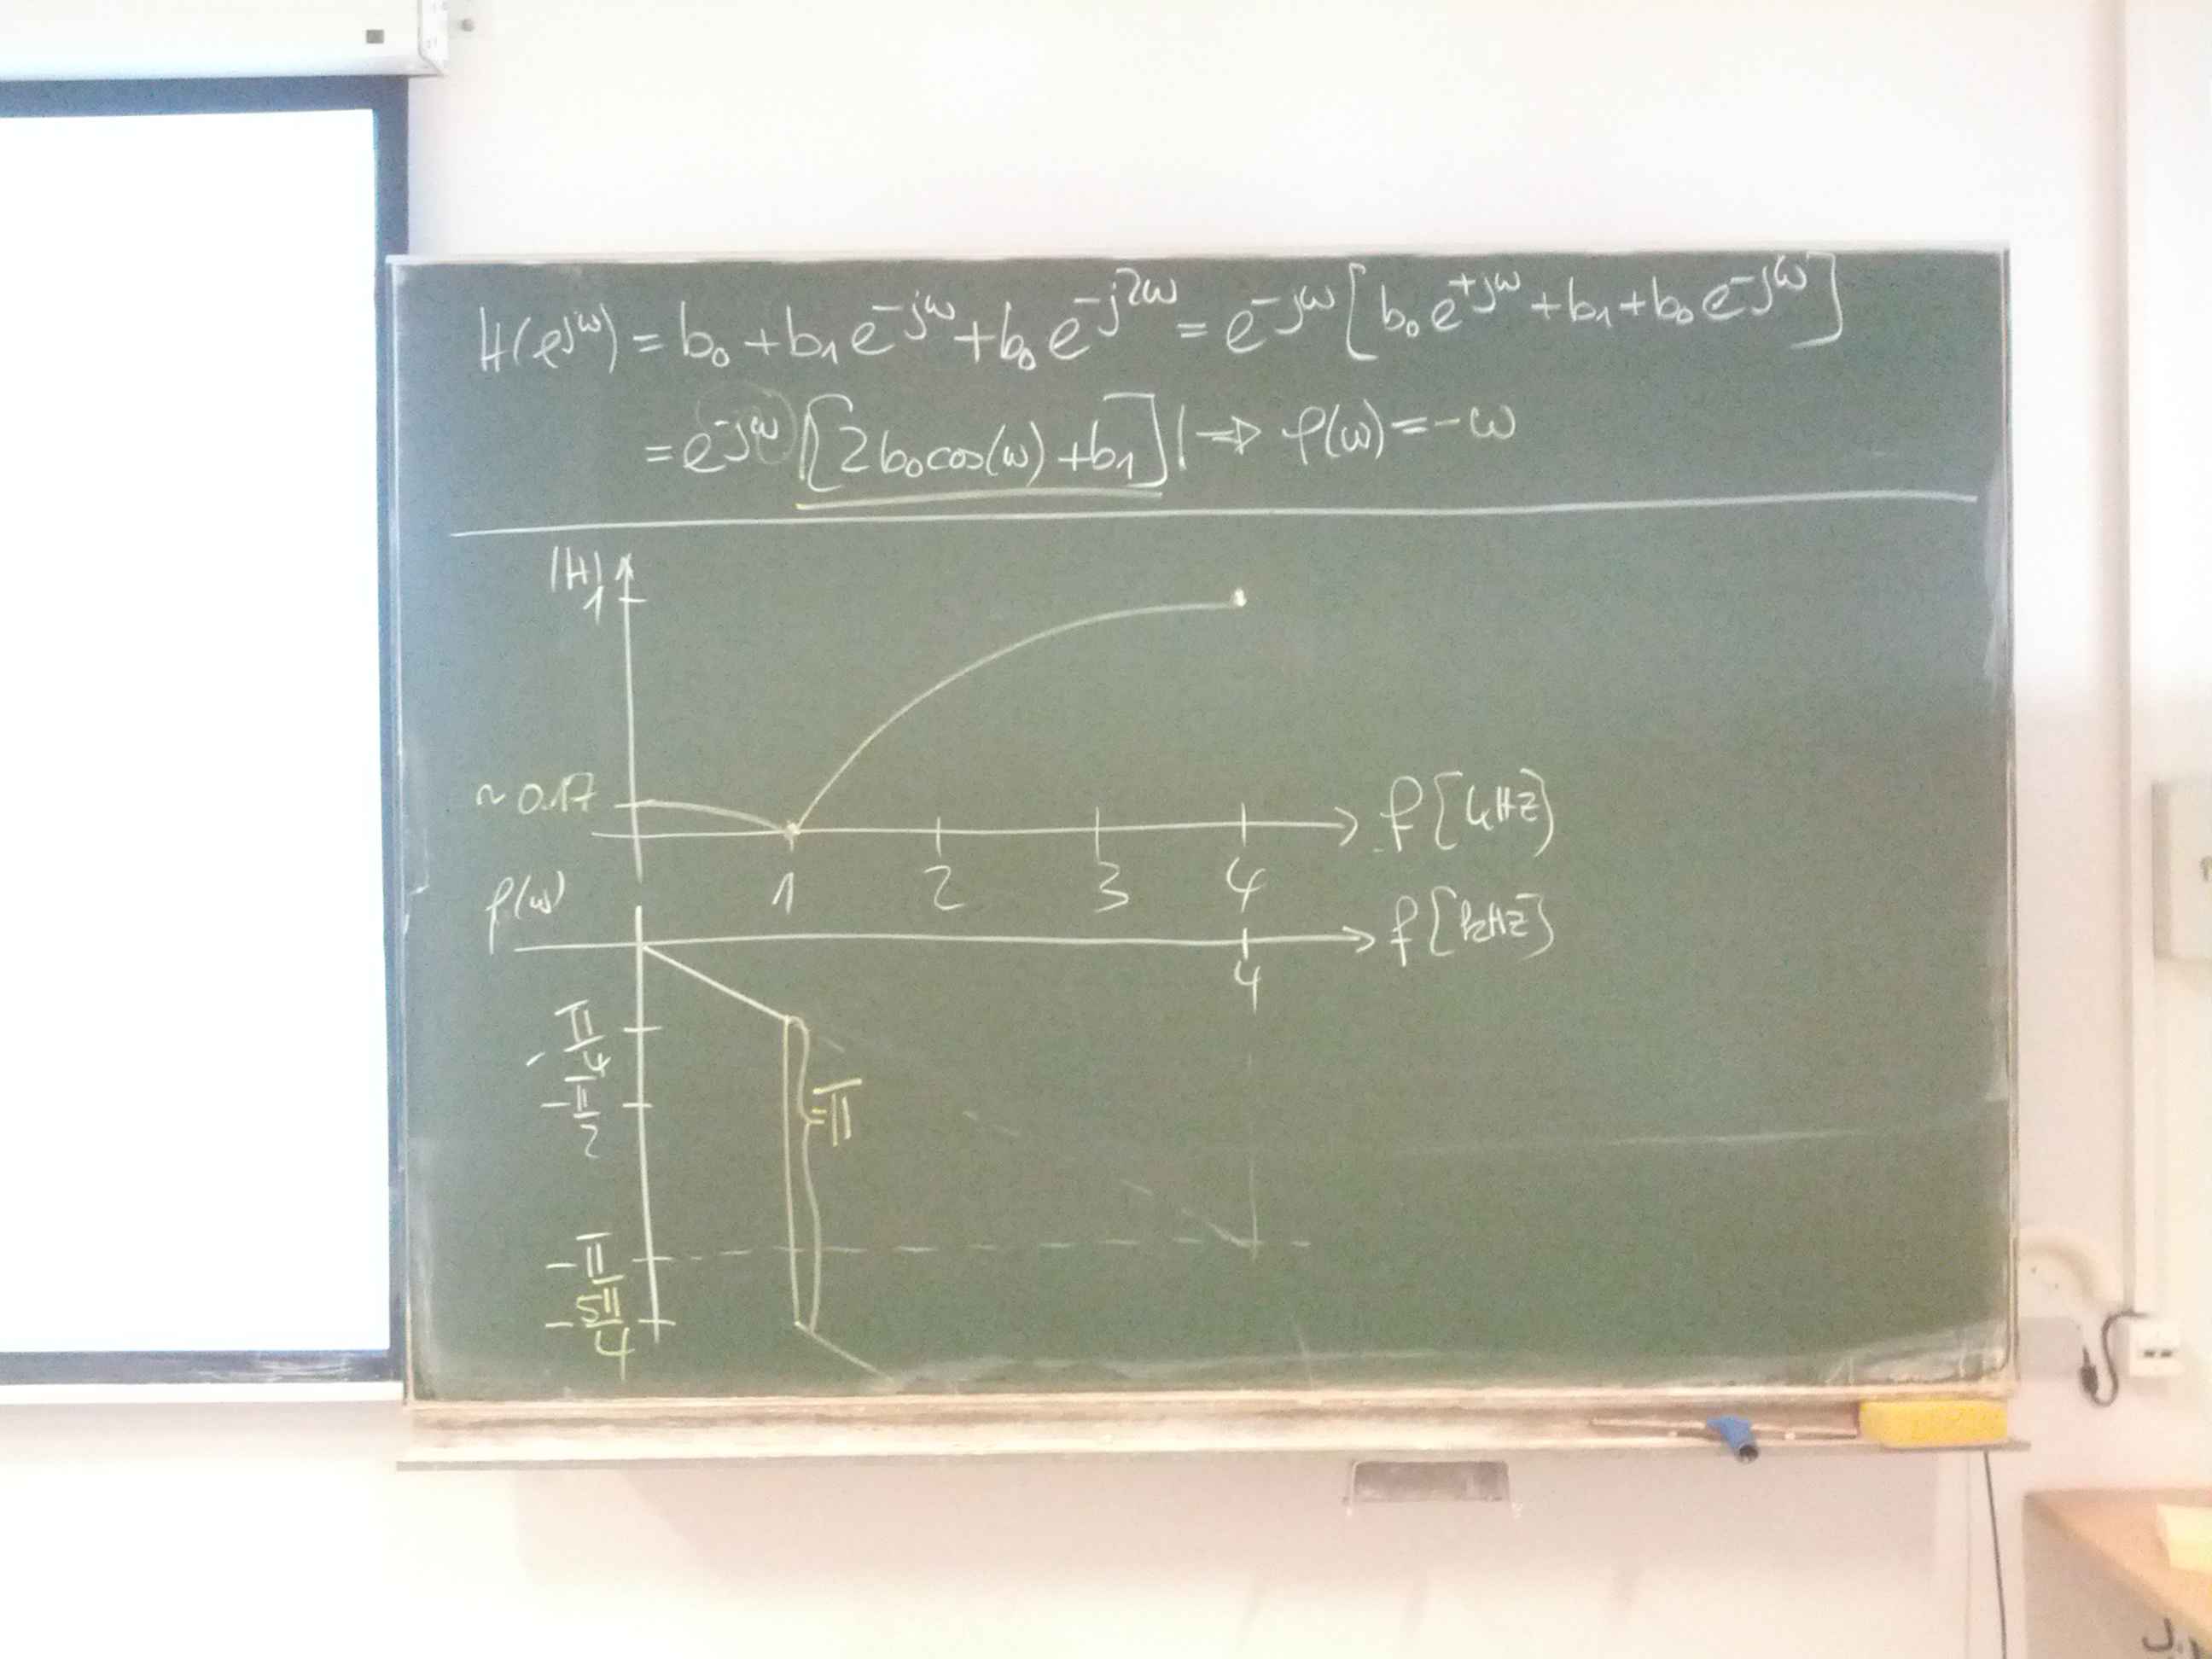 H(e^{jω}) = b₀ + b₁e^{-jω} + b₀e^{-j2ω} = e^{-jω}[b₀e^{+jω} + b₁ + b₀e^{-jω}]
= e^{-jω}[2b₀cos(ω) + b₁] | ⇒ φ(ω) = -ω
|H|
1
~0.17
f[kHz]
1 2 3 4
φ(ω)
f[kHz]
4
-π/4
-π/2
=π
-π
-5π/4